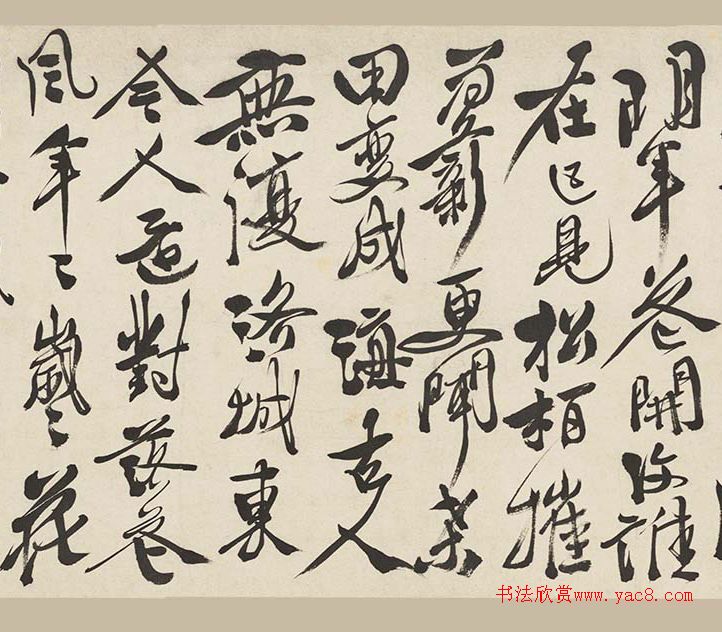 明年花開復誰
在已見松柏摧
為薪更聞桑
田變成海古人
無復洛城東
今人還對落花
風年〻歲〻花
书法欣赏www.yac8.com